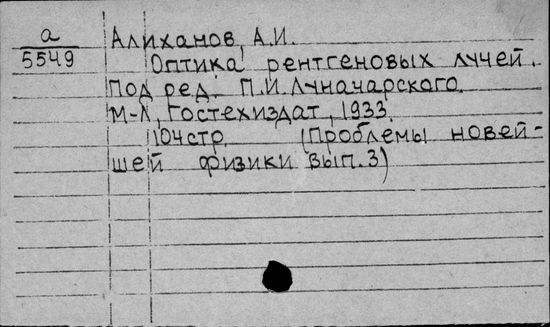 а
5549
Алиханов, А.И.
Оптика рентгеновых лучей.
Под ред. П.И. Луначарского.
М-Л, Гостехиздат, 1933.
104стр. (Проблемы новей-
шей физики вып. 3)